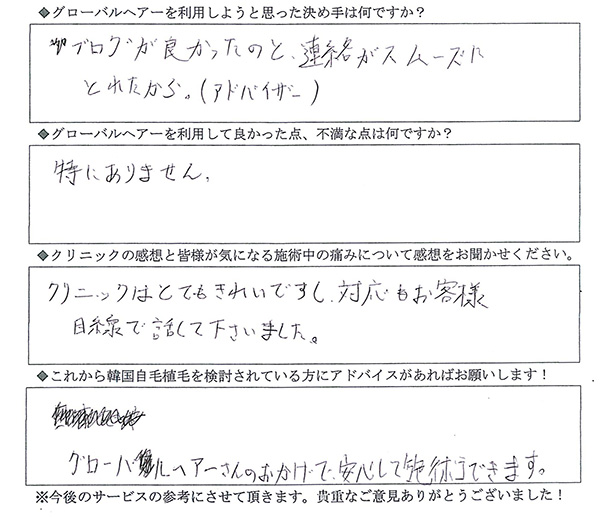 ◆グローバルヘアーを利用しようと思った決め手は何ですか？
ブログが良かったのと、連絡がスムーズに
とれたから。(アドバイザー)
◆グローバルヘアーを利用して良かった点、不満な点は何ですか？
特にありません。
◆クリニックの感想と皆様が気になる施術中の痛みについて感想をお聞かせください。
クリニックはとてもきれいですし、対応もお客様
目線で話して下さいました。
◆これから韓国自毛植毛を検討されている方にアドバイスがあればお願いします！
グローバルヘアーさんのおかげで、安心して施術できます。
※今後のサービスの参考にさせて頂きます。貴重なご意見ありがとうございました！